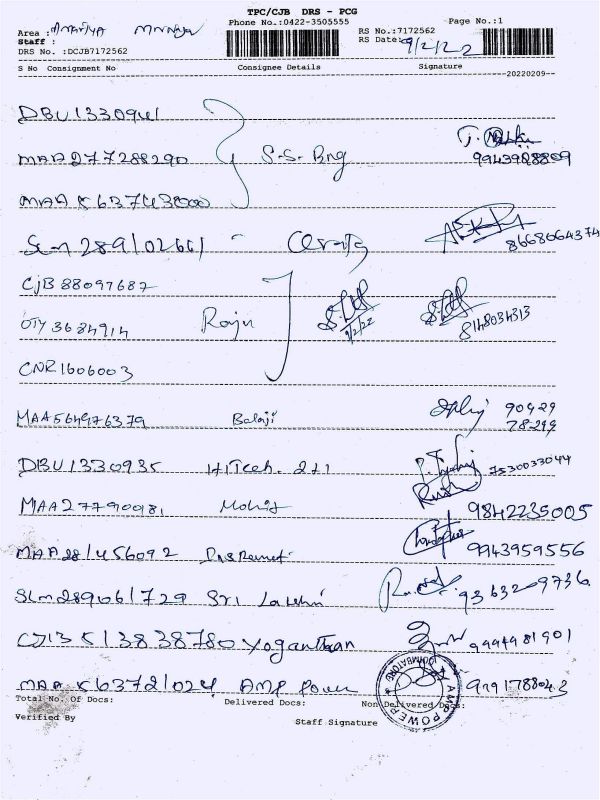 TPC/CJB DRS - PCG
Phone No.:0422-3505555
Page No.:1
Area :
Staff :
DRS No. :DCJB7172562
RS No.:7172562
RS Date: 9/2/22
S No Consignment No Consignee Details Signature
20220209
DBU1330941
MAA277288290 S.S. Bng 9943928809
MAA563743000
SLM289102661 8668064374
CJB88097687
OTY3684914 Raju 9/2/22 8148034313
CNR1606003
MAA564976379 Balaji 90429
78299
DBU1330935 HiTech. 2+1 7530033044
MAA27790981 Mohit 9842235005
MAA281456092 9943959556
SLM289061729 Sri Lakshmi 9363209736
CJB513838780 Yoganthan 9444981901
MAA563721024 AMP Power
AMP POWER COIMBATORE
Total No. Of Docs: Delivered Docs: Non Delivered Docs:
Verified By Staff Signature